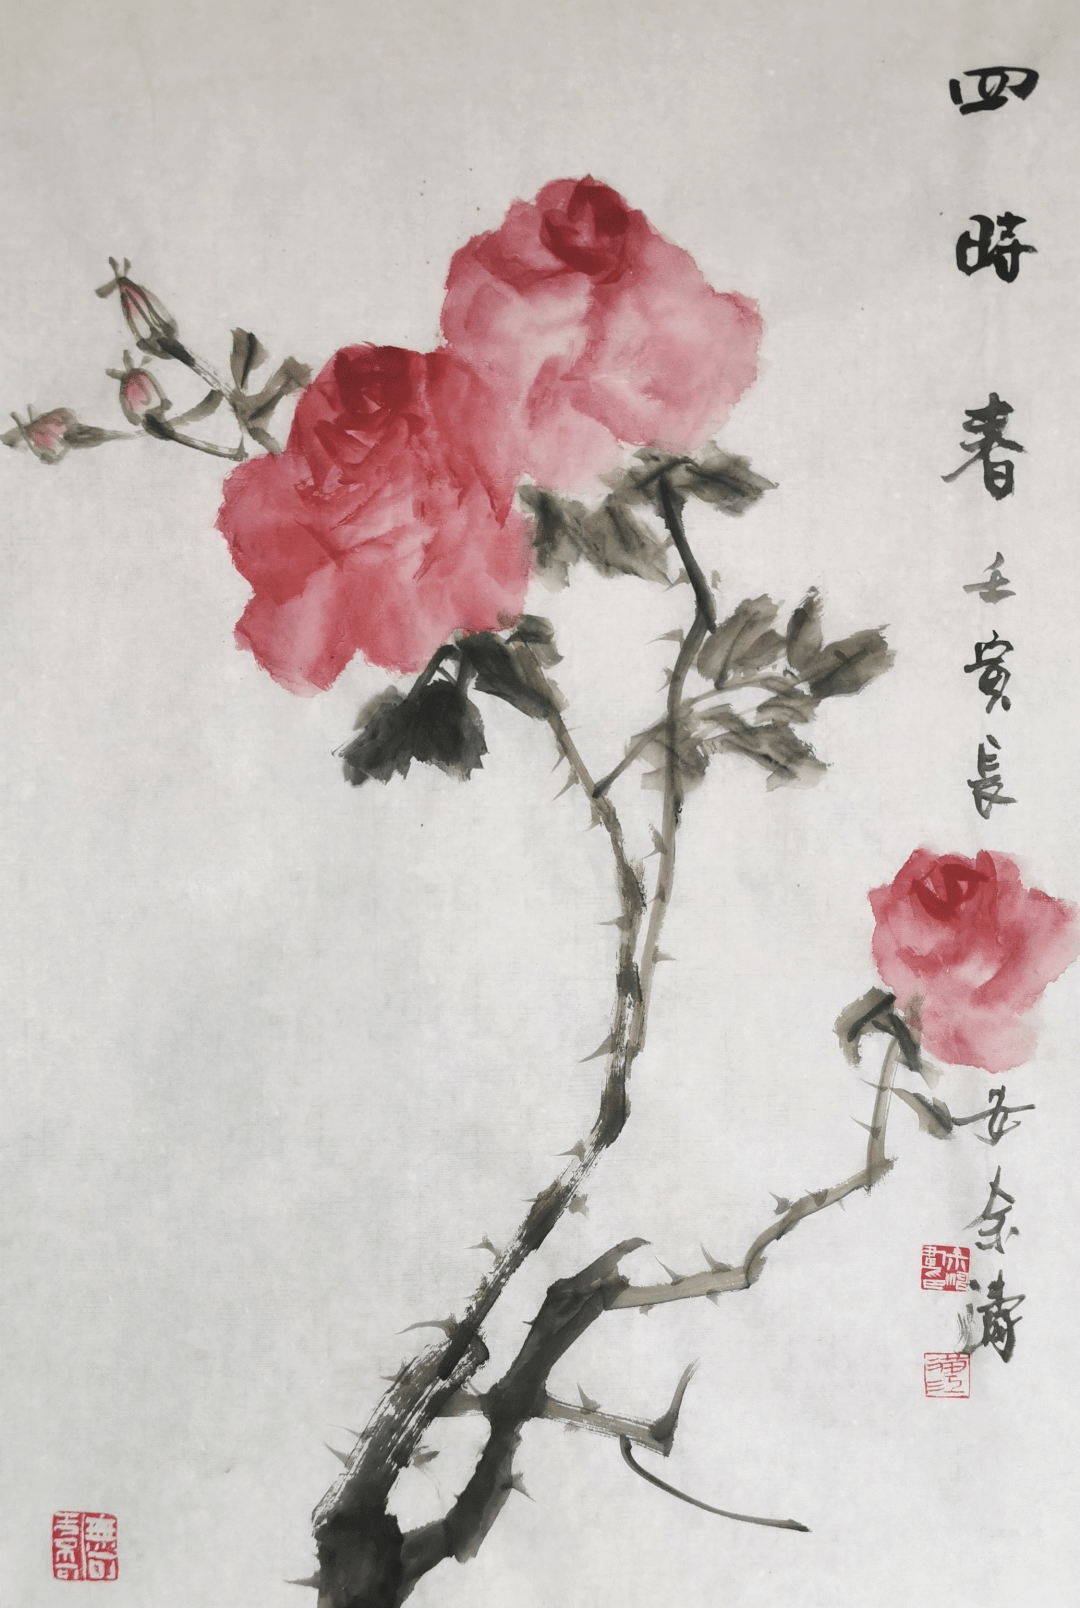 四時春
壬寅長安余濤